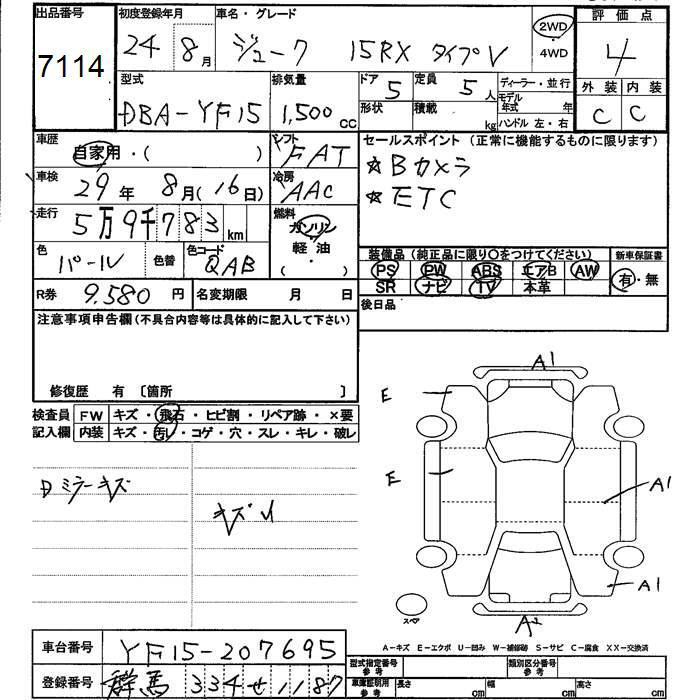 出品番号 初度登録年月 車名・グレード 評価点
7114 24 8月 ジューク 15RX タイプV 2WD・4WD 4
型式 排気量 ドア 5 定員 5人 ディーラー・並行 外装 内装
DBA-YF15 1,500cc 形状 積載 kg モデル年式 年 C C
ハンドル 左・右
車歴 自家用・( ) シフト FAT セールスポイント (正常に機能するものに限ります)
車検 29年 8月(16日) 冷房 AAC ☆Bカメラ
☆ETC
走行 5万9千783km 燃料 ガソリン・軽油・( )
色 パール 色替 色コード QAB 装備品 (純正品に限り○をつけてください) 新車保証書
PS PW ABS エアB AW 有・無
R券 9.580円 名変期限 月 日 SR ナビ TV 本革
注意事項申告欄(不具合内容等は具体的に記入して下さい) 後日品
修復歴 有 〔箇所 〕
検査員 FW キズ・飛石・ヒビ割・リペア跡・×要
記入欄 内装 キズ・汚レ・コゲ・穴・スレ・キレ・破レ
A1
E
E
A1
A1
スペア
A2
ミラーキズ キズ
A-キズ E-エクボ U-凹み W-補修跡 S-サビ C-腐食 XX-交換済
車台番号 YF15-207695
型式指定番号 参考 類別区分番号 参考
登録番号 群馬 334 せ 1187
車庫証明用 参考 長さ cm 幅 cm 高さ cm